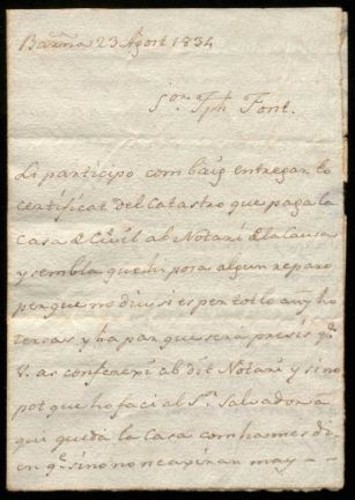 Barna 23 Agost 1834
Sor. Jph Font.
Li participo com baig entregar lo
certificat del Catastro que paga la
casa de Civil al Notari de la Causa
y sembla que hi posa algun reparo
perque no diu si es per tot lo any ho
tersas y ha par que será presis qe.
V. as conferexi ab dit Notari y sino
pot que ho faci al Sr. Salvador a
qui quedá la Casa com hames di-
en qe. sino no ne
may